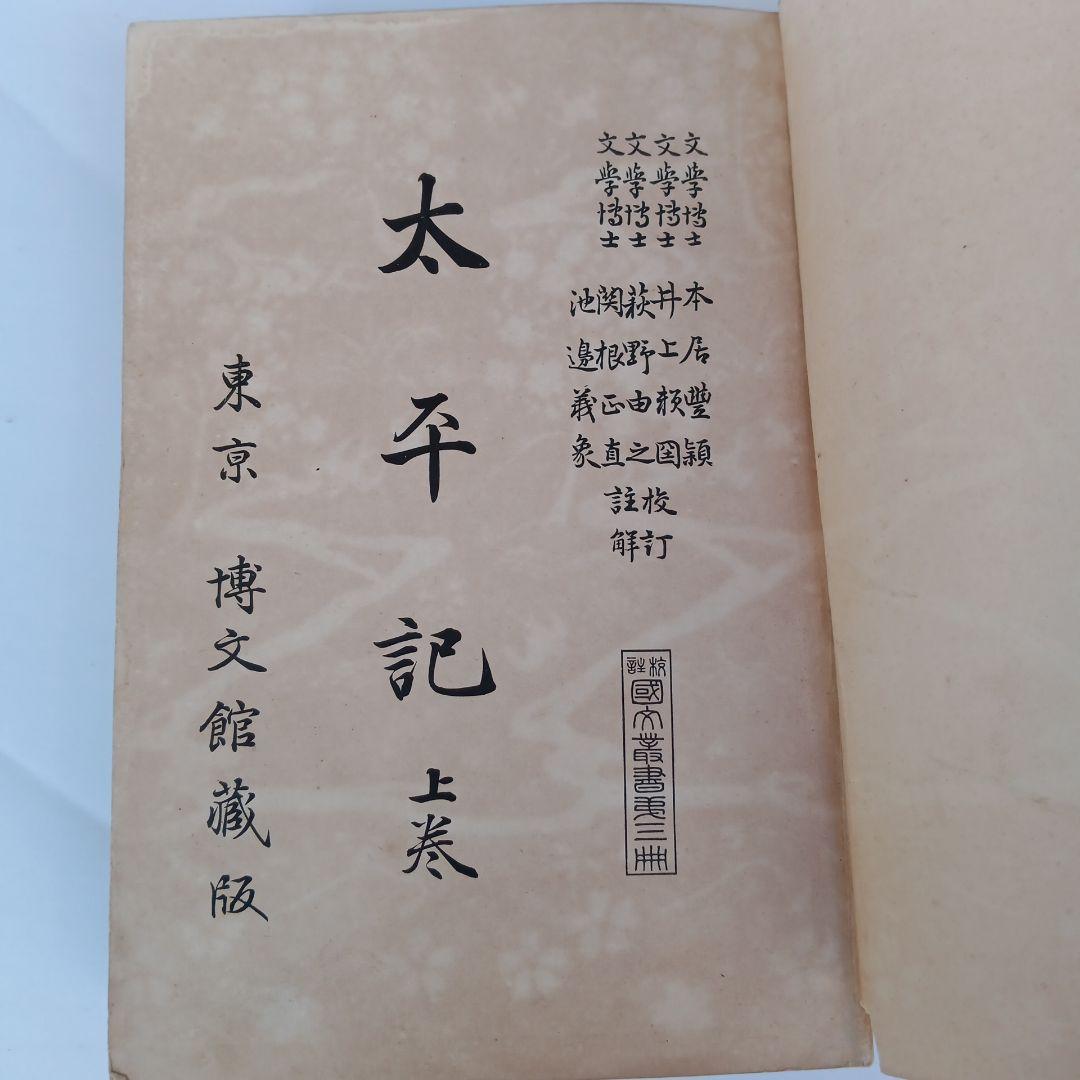 文學博士 本居豐穎
文學博士 井上頼囶
文學博士 萩野由之
文學博士 関根正直
池邊義象
校訂
註解
校註
國文叢書第三冊
太平記 上卷
東京 博文館藏版